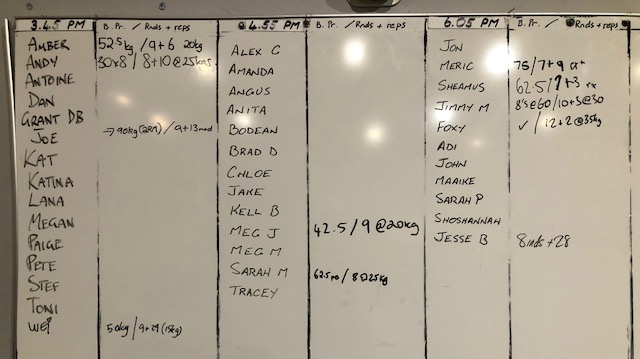 3.45 PM B. Pr. / Rnds + reps
AMBER 52.5kg / 9+6 20kg
ANDY 30x8 / 8+10 @ 25kgs
ANTOINE
DAN
GRANT DB
JOE → 90kg (2RM) / 9+13 mod
KAT
KATINA
LANA
MEGAN
PAIGE
PETE
STEF
TONI
WEI 50kg / 9+29 (15kg)
4.55 PM B. Pr. / Rnds + reps
ALEX C
AMANDA
ANGUS
ANITA
BODEAN
BRAD D
CHLOE
JAKE
KELL B
MEG J 42.5 / 9 @ 20kg
MEG M
SARAH M 62.5 / 8 @ 25kg
TRACEY
6.05 PM B. Pr. / Rnds + reps
JON
MERIC 75 / 7+9
SHEAMUS 62.5 / 7+3 rx
JIMMY M 8's @ 60 / 10+3 @ 30
FOXY ✓ / 12+2 @ 35kg
ADI
JOHN
MAAIKE
SARAH P
SHOSHANNAH
JESSE B 8 rnds + 28